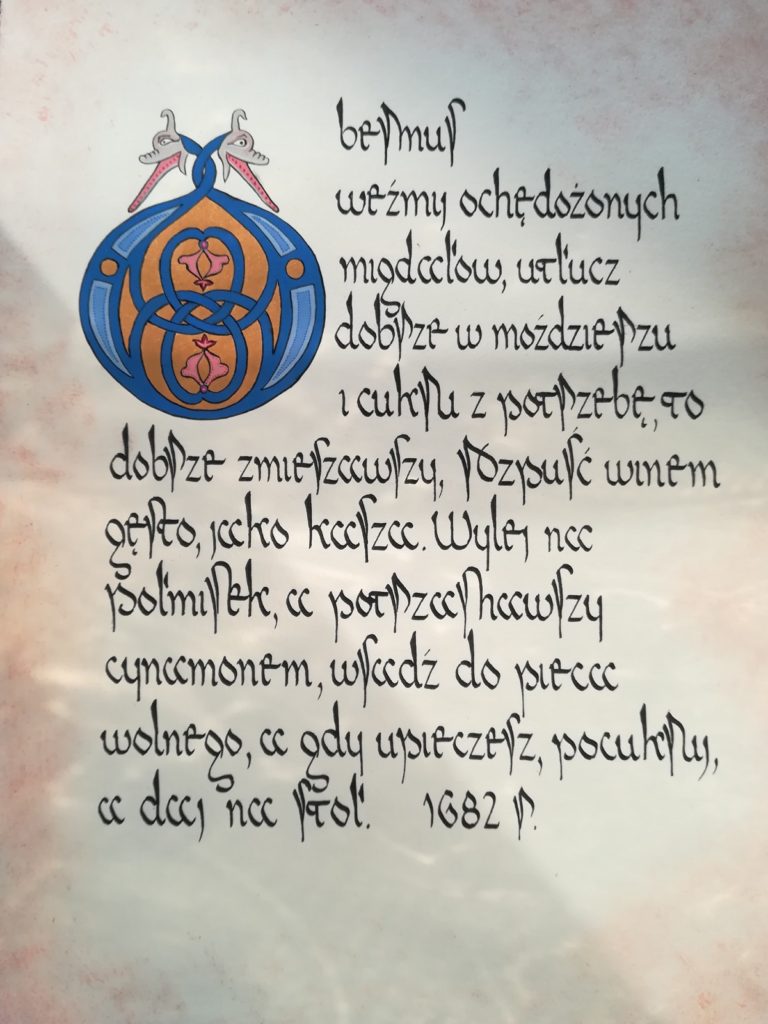 Obermus
weźmij ochędożonych
migdałow, utłucz
dobrze w moździerzu
i cukru z potrzebę, to
dobrze zmieszawszy, rozpuść winem
gęsto, jako kasza. Wylej na
połmisek, a potrzaskawszy
cynamonem, wsadź do pieca
wolnego, a gdy upieczesz, pocukruj,
a daj na stoł. 1682 r.